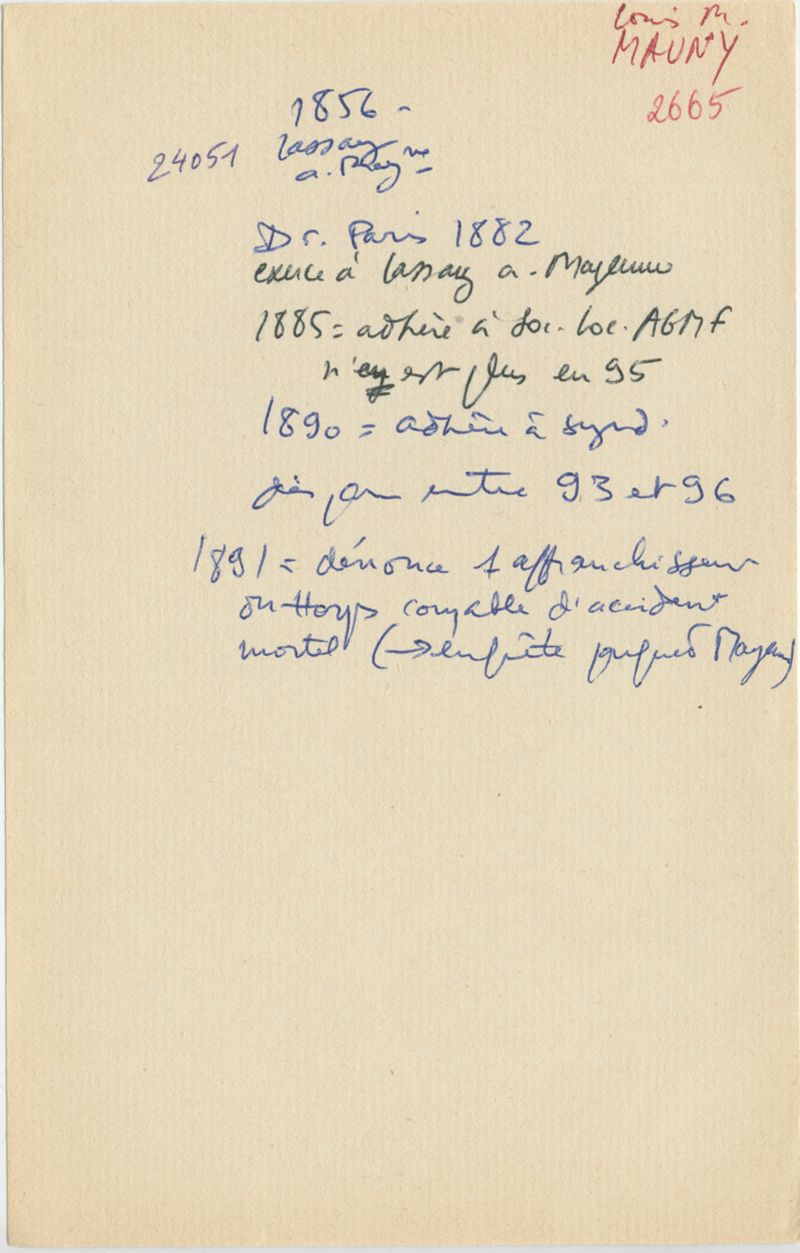 Louis M.
MAUNY
2665
1856 -
24051 Lassay
a. May ne
Dr. Paris 1882
exerce à Lassay a. Mayenne
1885 = adhère à Soc. Loc. AGMF
n'en est plus en 95
1890 = adhère à synd.
entre 93 et 96
1891 = dénonce 1 affranchisseur
du Horps coupable d'accident
mortel (→ enquête Mayenne)